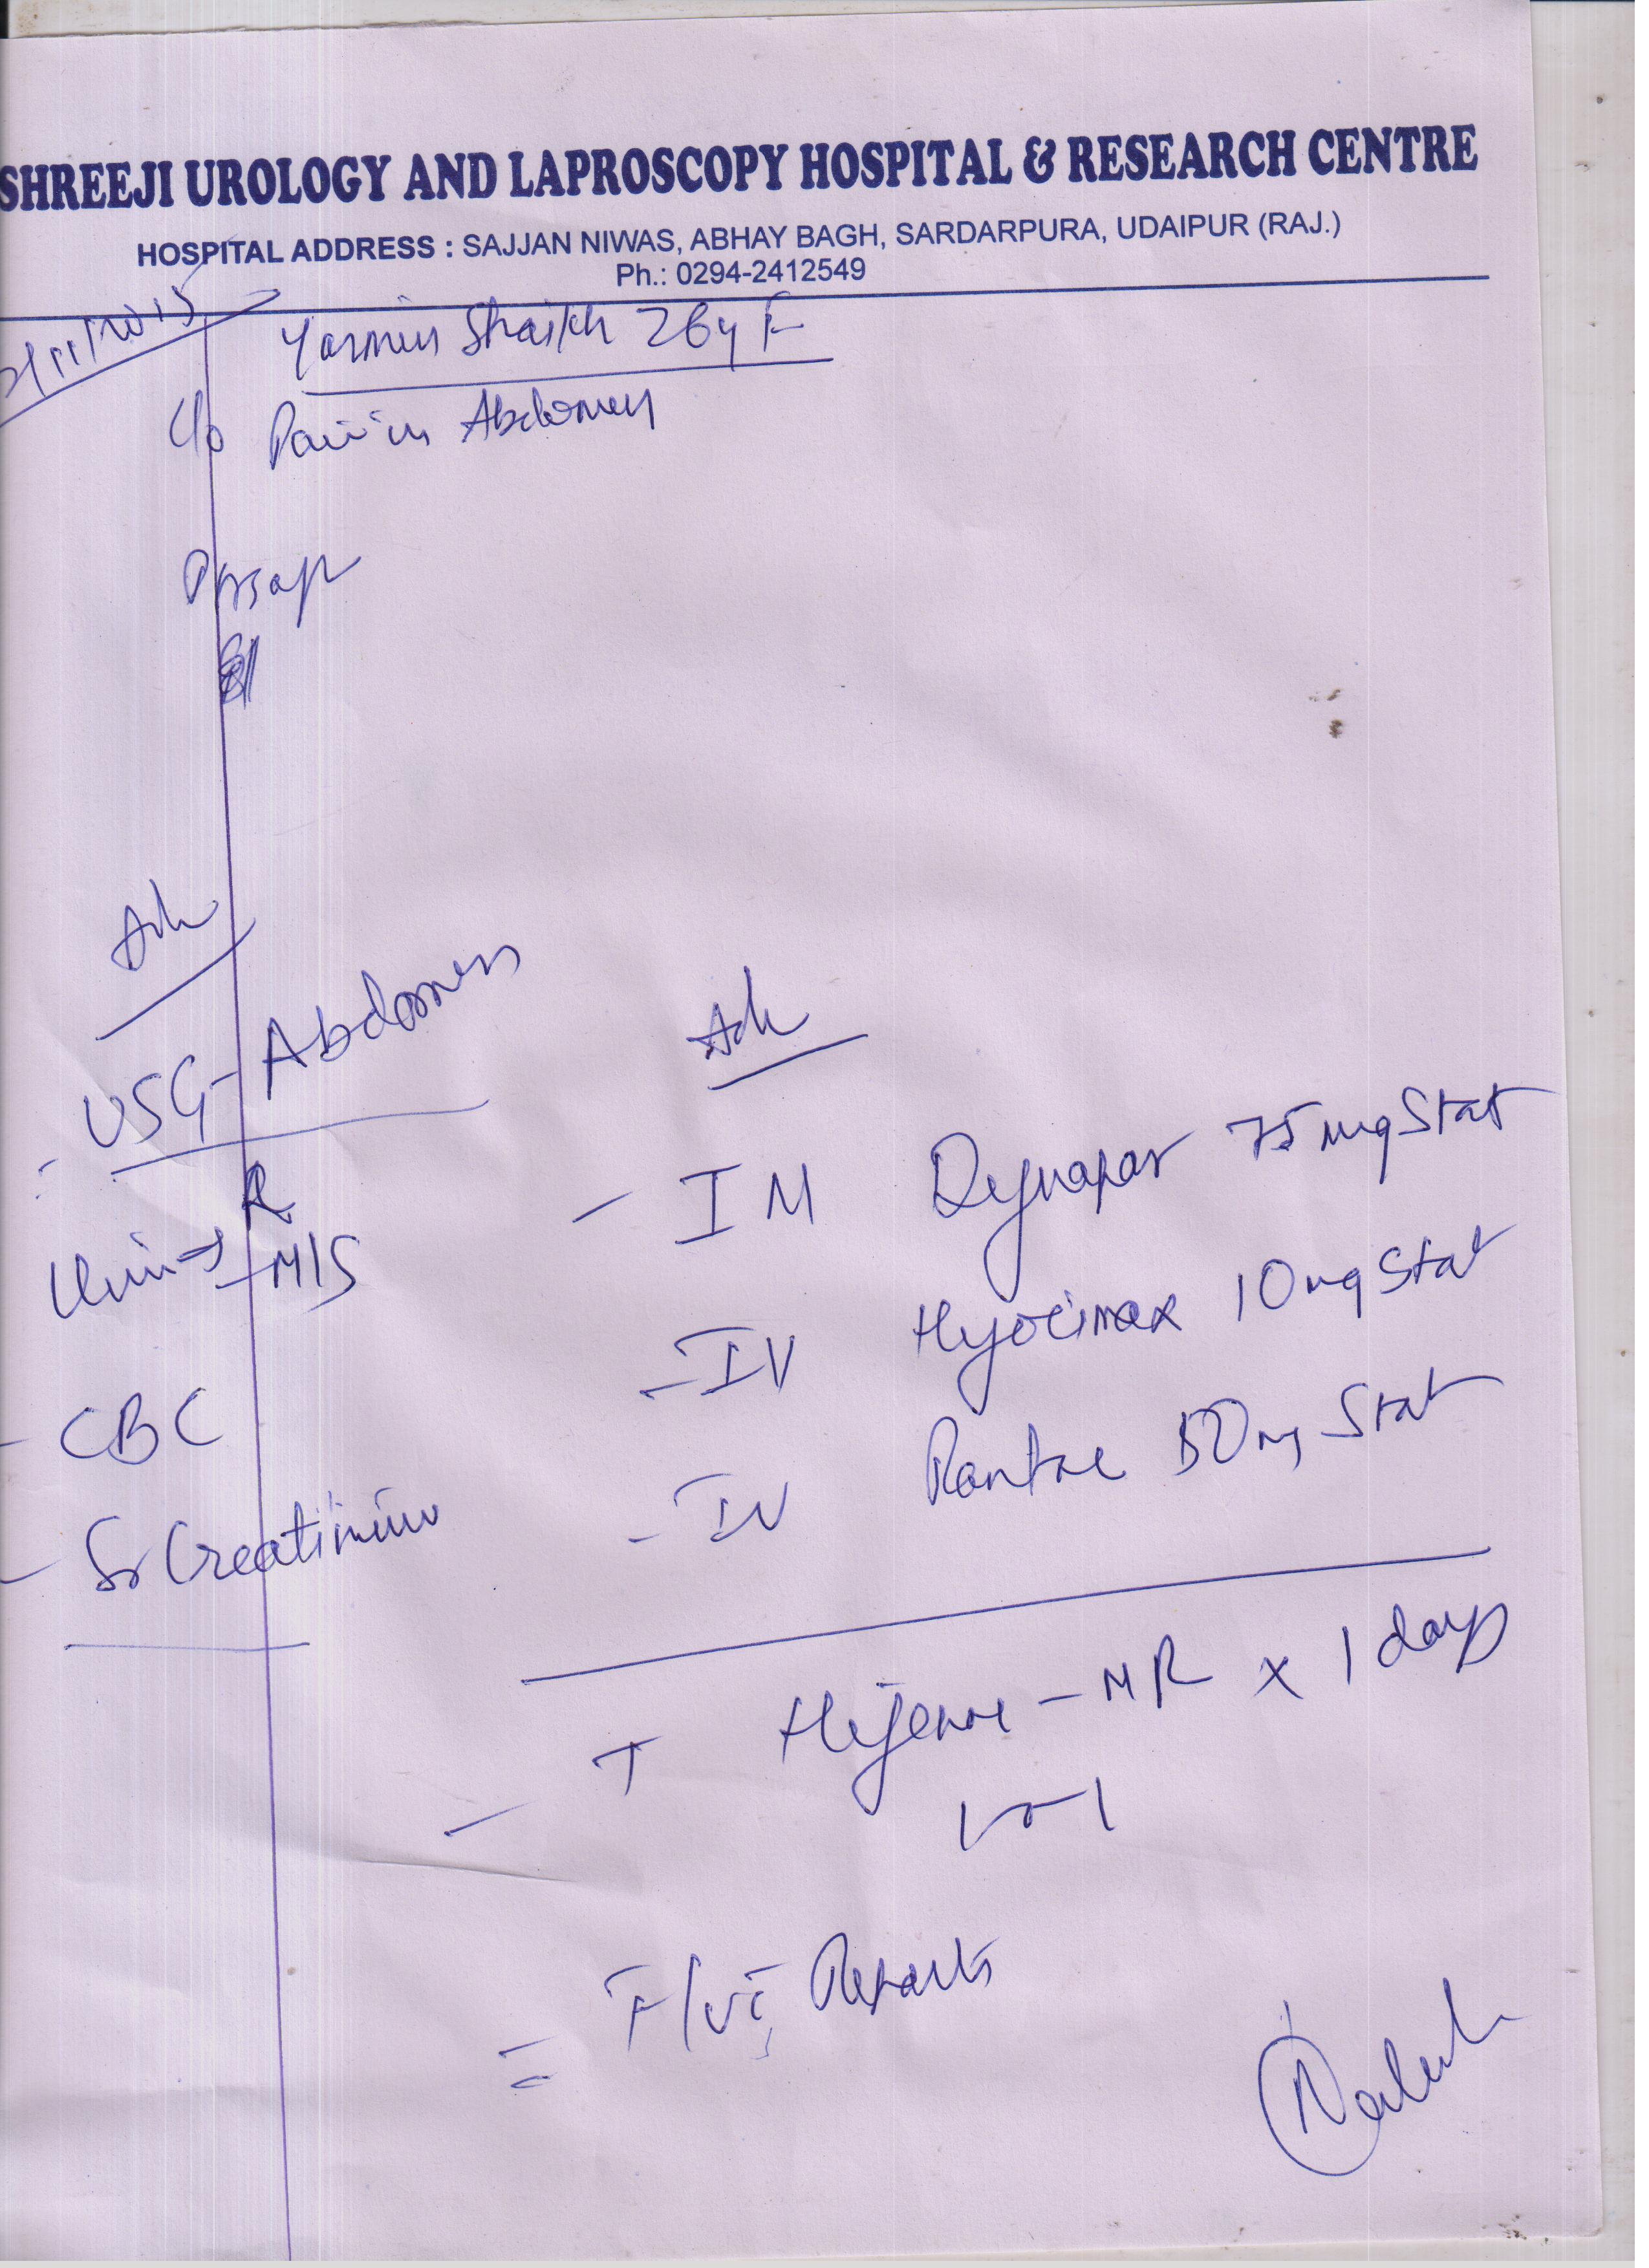 SHREEJI UROLOGY AND LAPROSCOPY HOSPITAL & RESEARCH CENTRE
HOSPITAL ADDRESS : SAJJAN NIWAS, ABHAY BAGH, SARDARPURA, UDAIPUR (RAJ.)
Ph.: 0294-2412549
/11/2015
Yasmin Shaikh 26y F
C/o Pain in Abdomen
Adv
USG - Abdomen
Urine R
M/S
- CBC
- Sr Creatinine
Adv
- IM Dynapar 75 mg Stat
- IV Hyocimax 10 mg Stat
- IV Rantac 50 mg Stat
- T - MR x 1 days
1-0-1
= Reports